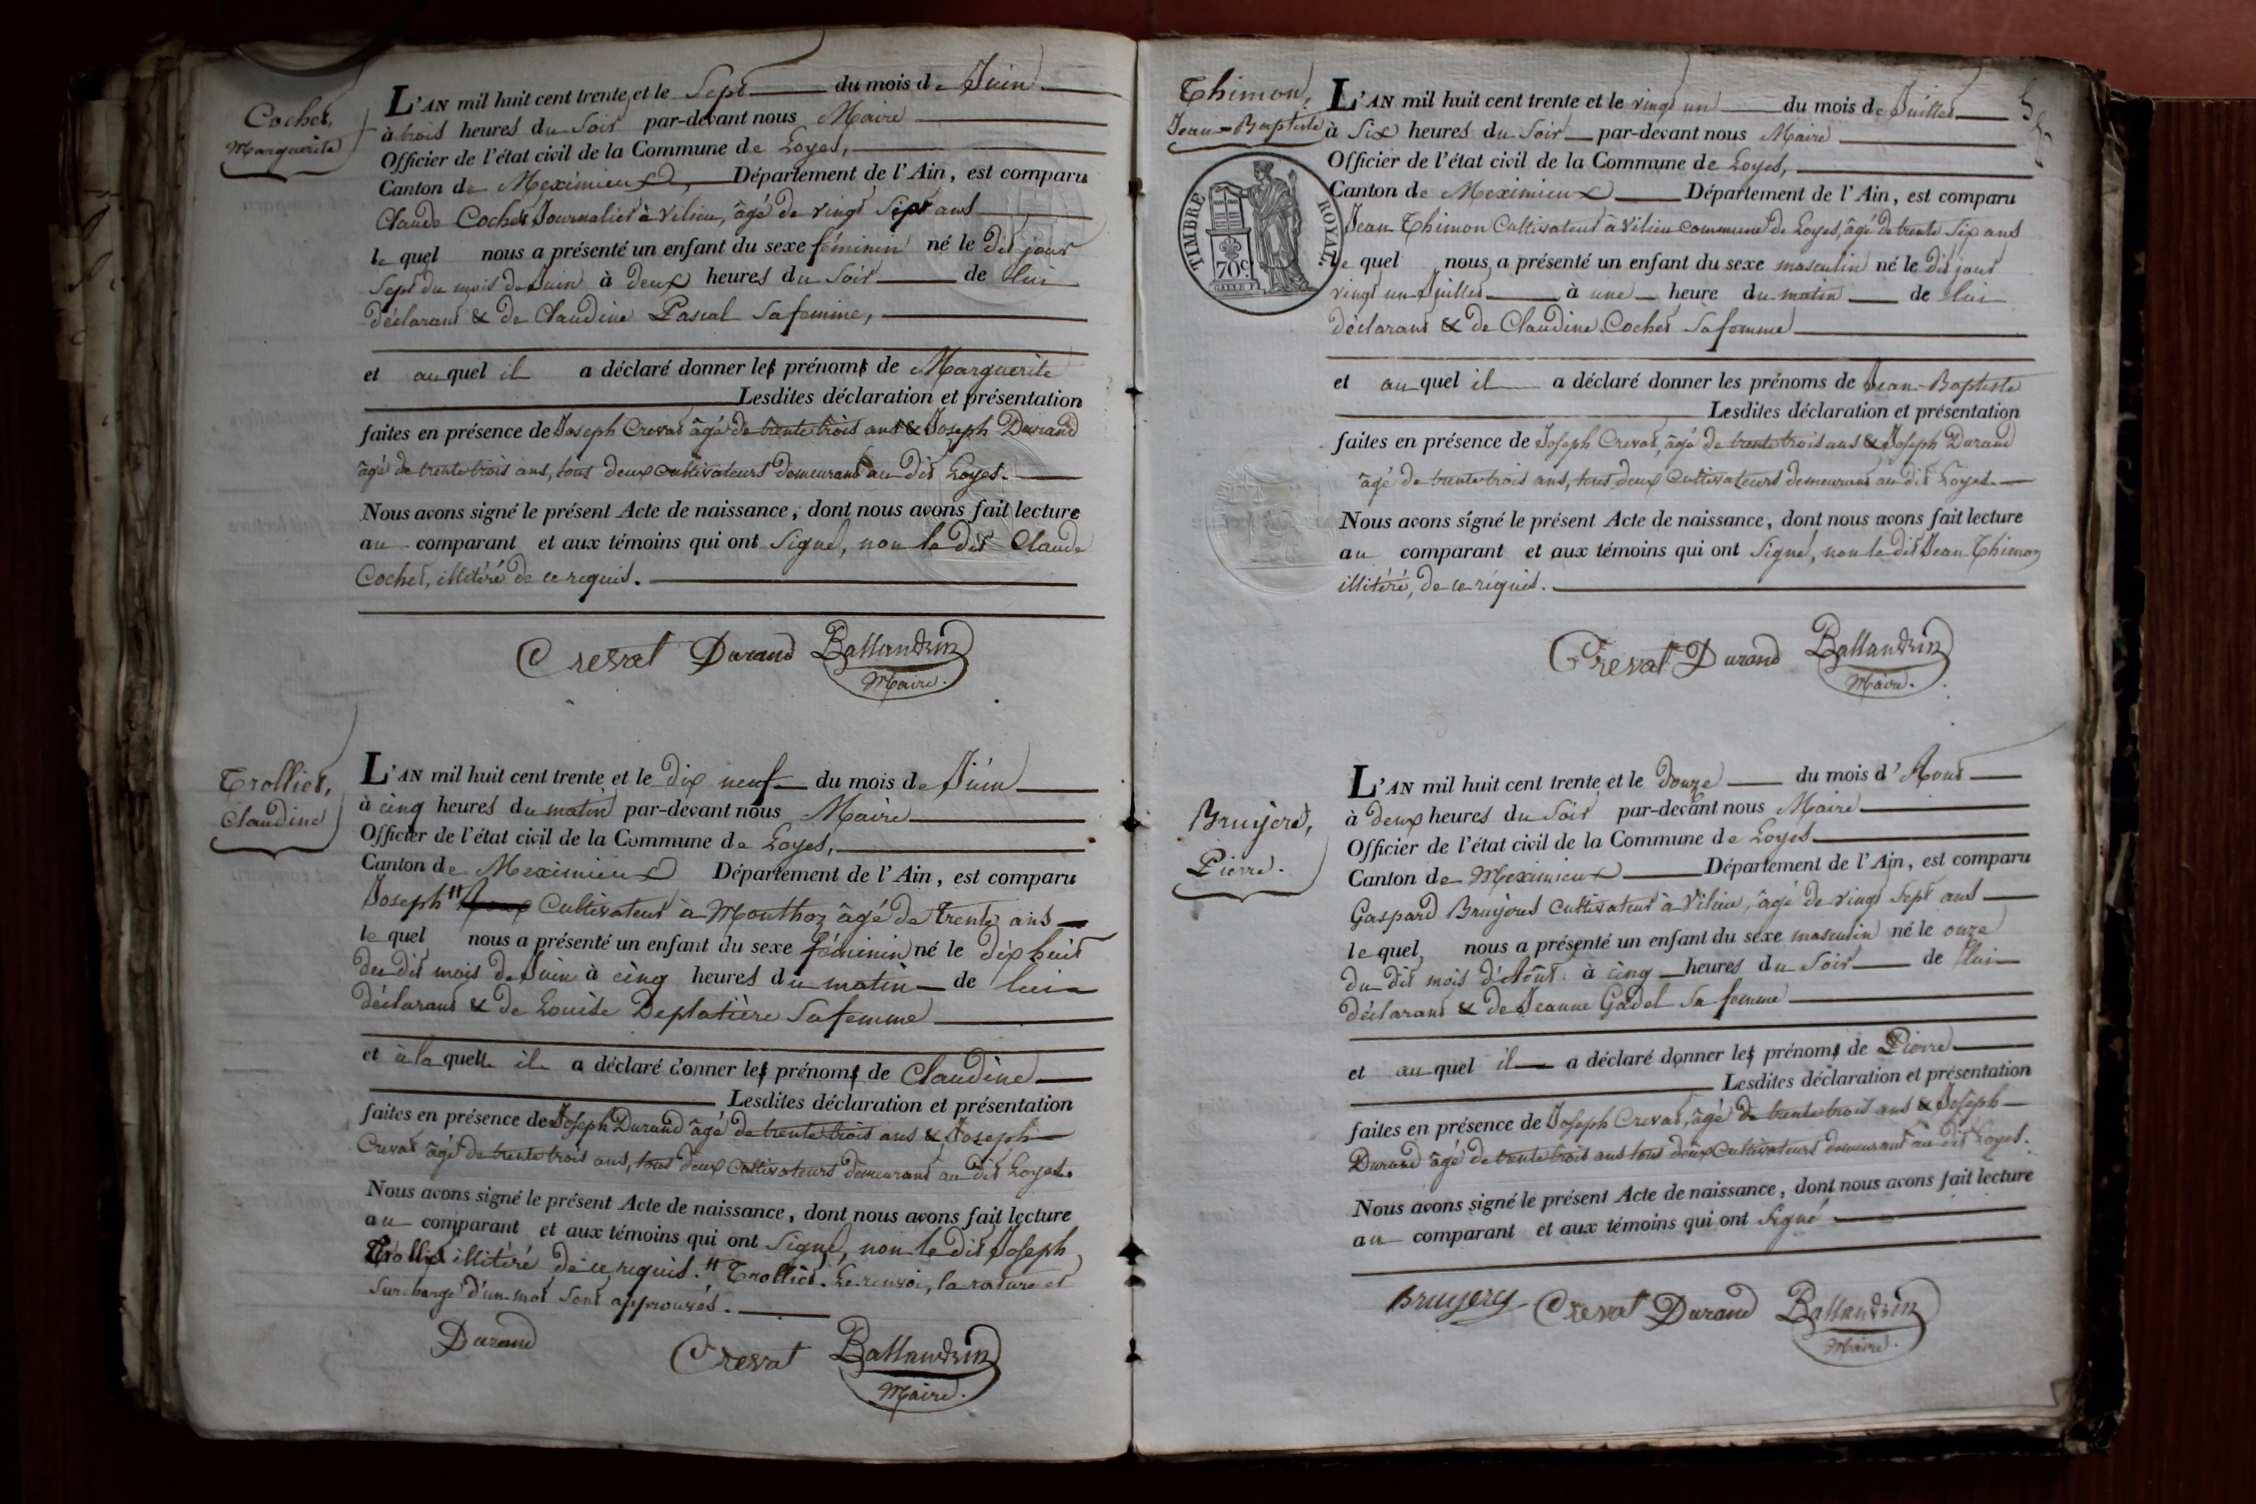 Cochet,
Marguerite
L'AN mil huit cent trente, et le Sept du mois de Juin
à trois heures du Soir par-devant nous Maire
Officier de l'état civil de la Commune de Loyes,
Canton de Meximieux, Département de l'Ain, est comparu
Claude Cochet Journalier à Vilieu, âgé de vingt Sept ans
le quel nous a présenté un enfant du sexe féminin né le dit jour
Sept du mois de Juin à deux heures du Soir de lui
déclarant & de Claudine Pascal Sa femme,
et au quel il a déclaré donner les prénoms de Marguerite
Lesdites déclaration et présentation
faites en présence de Joseph Crevat âgé de trente trois ans & Joseph Durand
âgé de trente trois ans, tous deux cultivateurs demeurant au dit Loyes.
Nous avons signé le présent Acte de naissance, dont nous avons fait lecture
au comparant et aux témoins qui ont Signé, non le dit Claude
Cochet, illitéré de ce requis.
Crevat Durand Ballandrin
Maire.
Trolliet,
Claudine
L'AN mil huit cent trente et le dix neuf du mois de Juin
à cinq heures du matin par-devant nous Maire
Officier de l'état civil de la Commune de Loyes,
Canton de Meximieux Département de l'Ain, est comparu
Joseph " Cultivateur à Monthoz âgé de trente ans
le quel nous a présenté un enfant du sexe féminin né le dix huit
du dit mois de Juin à cinq heures du matin de lui
déclarant & de Louise Deplatière Sa femme
et à la quelle il a déclaré donner les prénoms de Claudine
Lesdites déclaration et présentation
faites en présence de Joseph Durand âgé de trente trois ans & Joseph
Crevat âgé de trente trois ans, tous deux Cultivateurs demeurant au dit Loyes.
Nous avons signé le présent Acte de naissance, dont nous avons fait lecture
au comparant et aux témoins qui ont Signé, non le dit Joseph
Trolliet illitéré de ce requis. " Trolliet. Le renvoi, la rature et
Surcharge d'un mot Sont approuvés.
Durand Crevat Ballandrin
Maire.
Thimon,
Jean-Baptiste
TIMBRE ROYAL
70c
L'AN mil huit cent trente et le vingt un du mois de Juillet
à Six heures du Soir par-devant nous Maire
Officier de l'état civil de la Commune de Loyes,
Canton de Meximieux Département de l'Ain, est comparu
Jean Thimon Cultivateur à Vilieu commune de Loyes, âgé de trente Six ans
le quel nous a présenté un enfant du sexe masculin né le dit jour
vingt un Juillet à une heure du matin de lui
déclarant & de Claudine Cochet Sa femme
et au quel il a déclaré donner les prénoms de Jean-Baptiste
Lesdites déclaration et présentation
faites en présence de Joseph Crevat, âgé de trente trois ans & Joseph Durand
âgé de trente trois ans, tous deux Cultivateurs demeurant au dit Loyes.
Nous avons signé le présent Acte de naissance, dont nous avons fait lecture
au comparant et aux témoins qui ont Signé, non le dit Jean Thimon
illitéré, de ce réquis.
Crevat Durand Ballandrin
Maire.
Bruyere,
Pierre.
L'AN mil huit cent trente et le douze du mois d'Aout
à deux heures du Soir par-devant nous Maire
Officier de l'état civil de la Commune de Loyes
Canton de Meximieux Département de l'Ain, est comparu
Gaspard Bruyeres Cultivateur à Vilieu, âgé de vingt Sept ans
le quel, nous a présenté un enfant du sexe masculin né le onze
du dit mois d'Août à cinq heures du Soir de lui
déclarant & de Jeanne Gadel Sa femme
et au quel il a déclaré donner les prénoms de Pierre
Lesdites déclaration et présentation
faites en présence de Joseph Crevat, âgé de trente trois ans & Joseph
Durand âgé de trente trois ans tous deux Cultivateurs demeurant au dit Loyes.
Nous avons signé le présent Acte de naissance, dont nous avons fait lecture
au comparant et aux témoins qui ont Signé
Bruyere Crevat Durand Ballandrin
Maire.